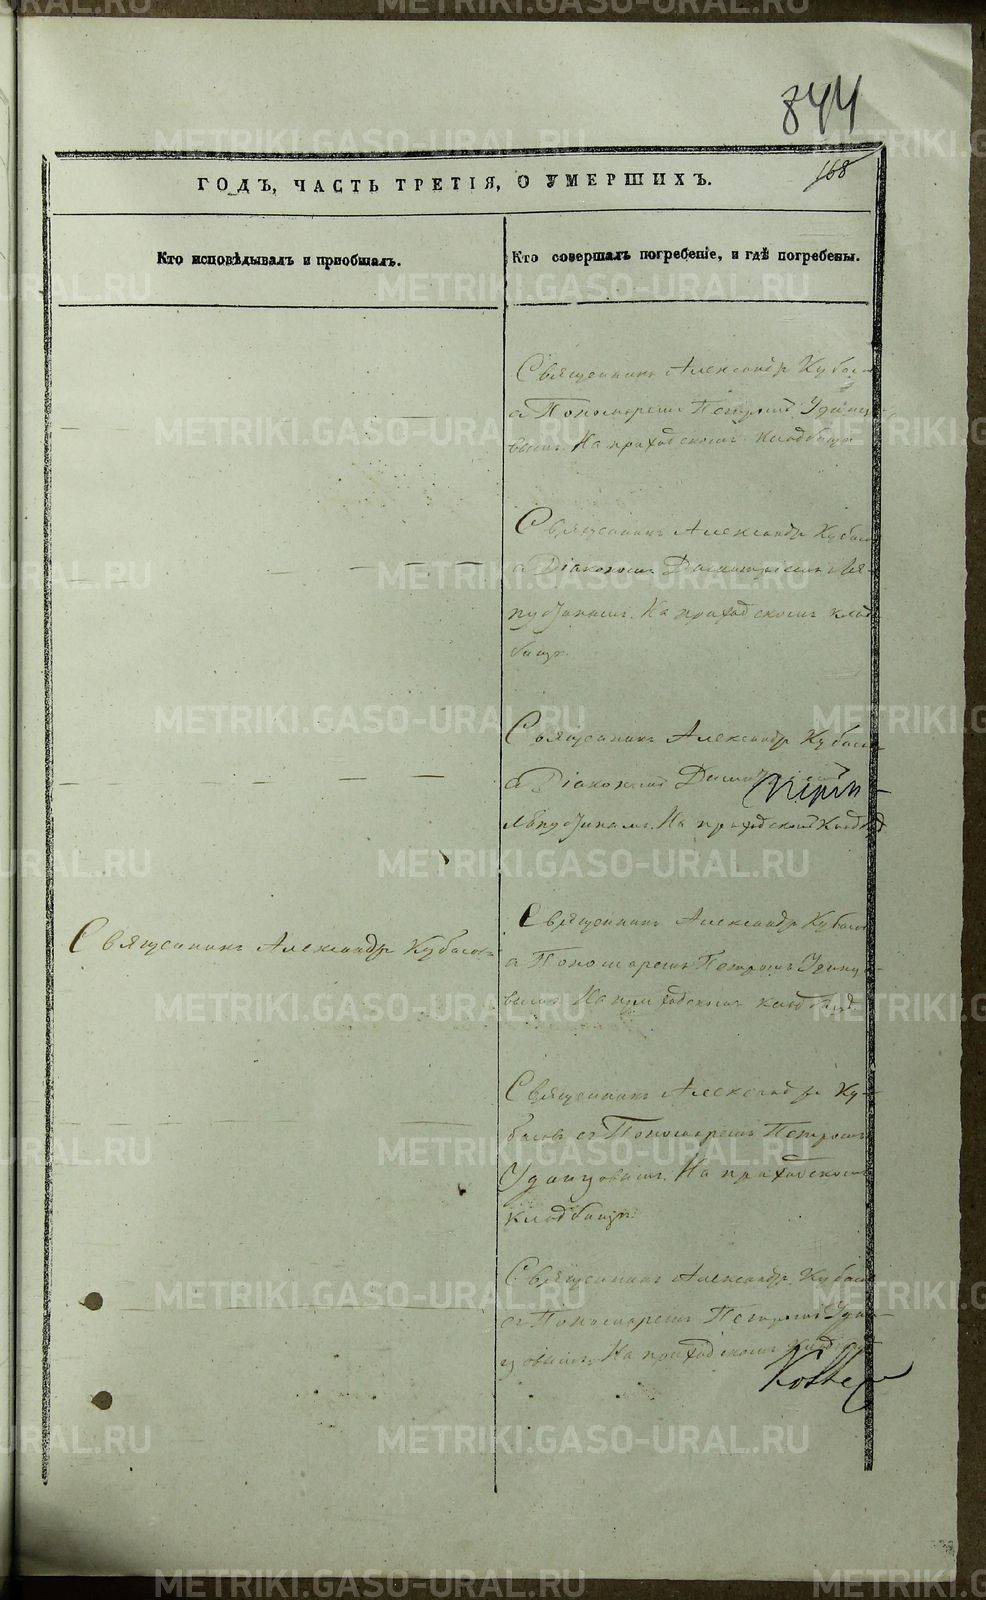 844
168
ГОДЪ, ЧАСТЬ ТРЕТІЯ, О УМЕРШИХЪ.
Кто исповѣдывалъ и пріобщалъ.
Кто совершалъ погребеніе, и гдѣ погребены.
Священникъ Александръ Кубасов
с Пономаремъ Петромъ Удинцо-
вымъ. На приходскомъ кладбищѣ
Священникъ Александръ Кубасов
с Діакономъ Димитріемъ
На приходскомъ клад-
бищѣ.
Священникъ Александръ Кубасов
с Діакономъ
На приходском кладб
Священникъ Александръ Кубасовъ
Священникъ Александръ Кубасов
с Пономаремъ Петромъ Удинцо-
вымъ На приходскомъ кладбищѣ
Священникъ Александръ Ку-
басовъ съ Пономаремъ Петромъ
Удинцовымъ. На приходскомъ
кладбищѣ.
Священникъ Александръ Кубасов
съ Пономаремъ Петромъ Удин-
цовымъ. На приходскомъ кладб
METRIKI.GASO-URAL.RU